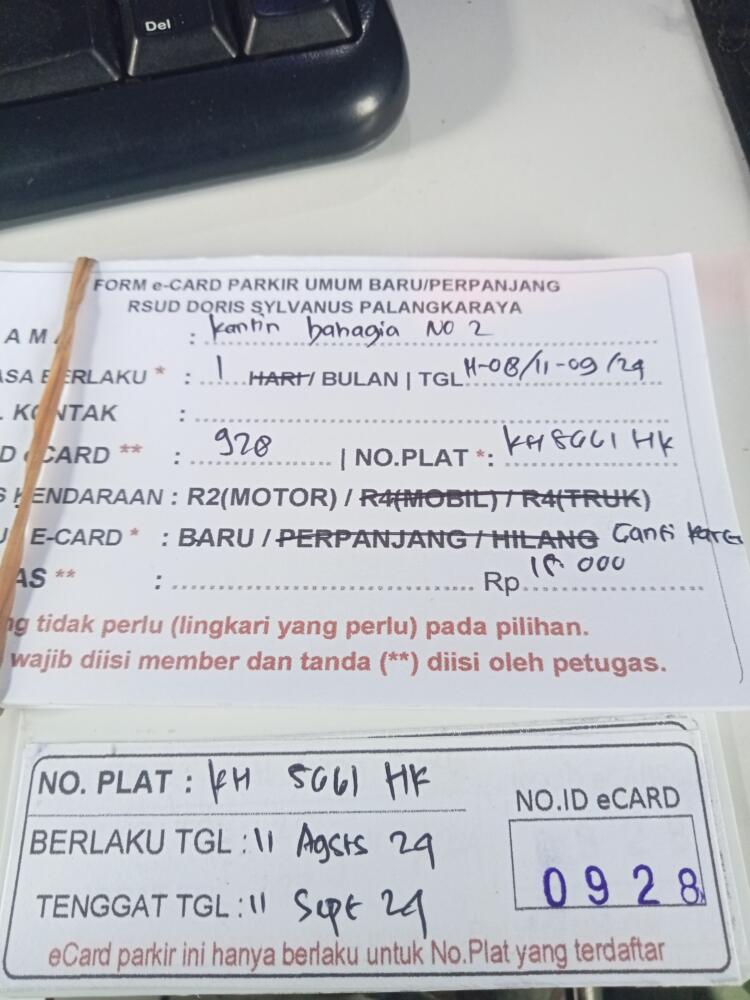 Del
FORM e-CARD PARKIR UMUM BARU/PERPANJANG
RSUD DORIS SYLVANUS PALANGKARAYA
AMA : kantin bahagia NO 2
ASA BERLAKU * : 1 HARI / BULAN | TGL 11-08/11-09/24
. KONTAK :
D CARD ** : 928 | NO.PLAT *: KH 5661 HK
S KENDARAAN : R2(MOTOR) / R4(MOBIL) / R4(TRUK)
E-CARD * : BARU / PERPANJANG / HILANG Ganti
AS ** : Rp 000
ng tidak perlu (lingkari yang perlu) pada pilihan.
wajib diisi member dan tanda (**) diisi oleh petugas.
NO. PLAT : KH 5661 HK
BERLAKU TGL : 11 Agsts 24
TENGGAT TGL : 11 Sept 24
NO.ID eCARD
0928
eCard parkir ini hanya berlaku untuk No.Plat yang terdaftar